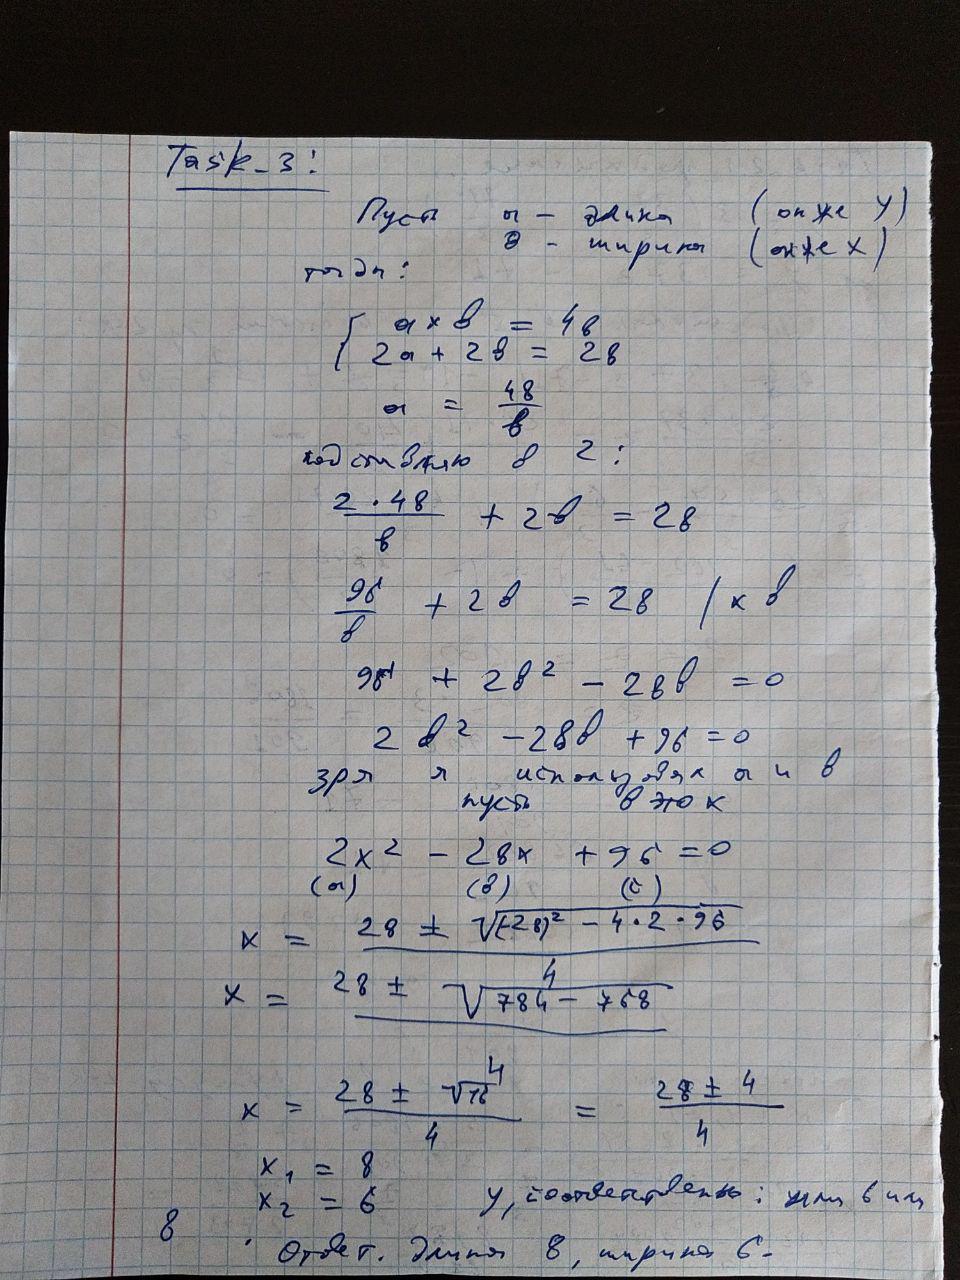 Task-3:
Пусть a - длина (он же y)
в - ширина (он же x)
тогда:
a × в = 48
2a + 2в = 28
a = 48/в
подставляю в 2:
2·48/в + 2в = 28
96/в + 2в = 28 / × в
96 + 2в² - 28в = 0
2в² - 28в + 96 = 0
зря я использовал a и в
пусть в это x
2x² - 28x + 96 = 0
(a) (в) (c)
x = 28 ± √(-28)² - 4·2·96 / 4
x = 28 ± √784 - 768 / 4
x = 28 ± √16 / 4 = 28 ± 4 / 4
x₁ = 8
x₂ = 6 y, соответственно: или 6 или
8
Ответ. Длина 8, ширина 6.